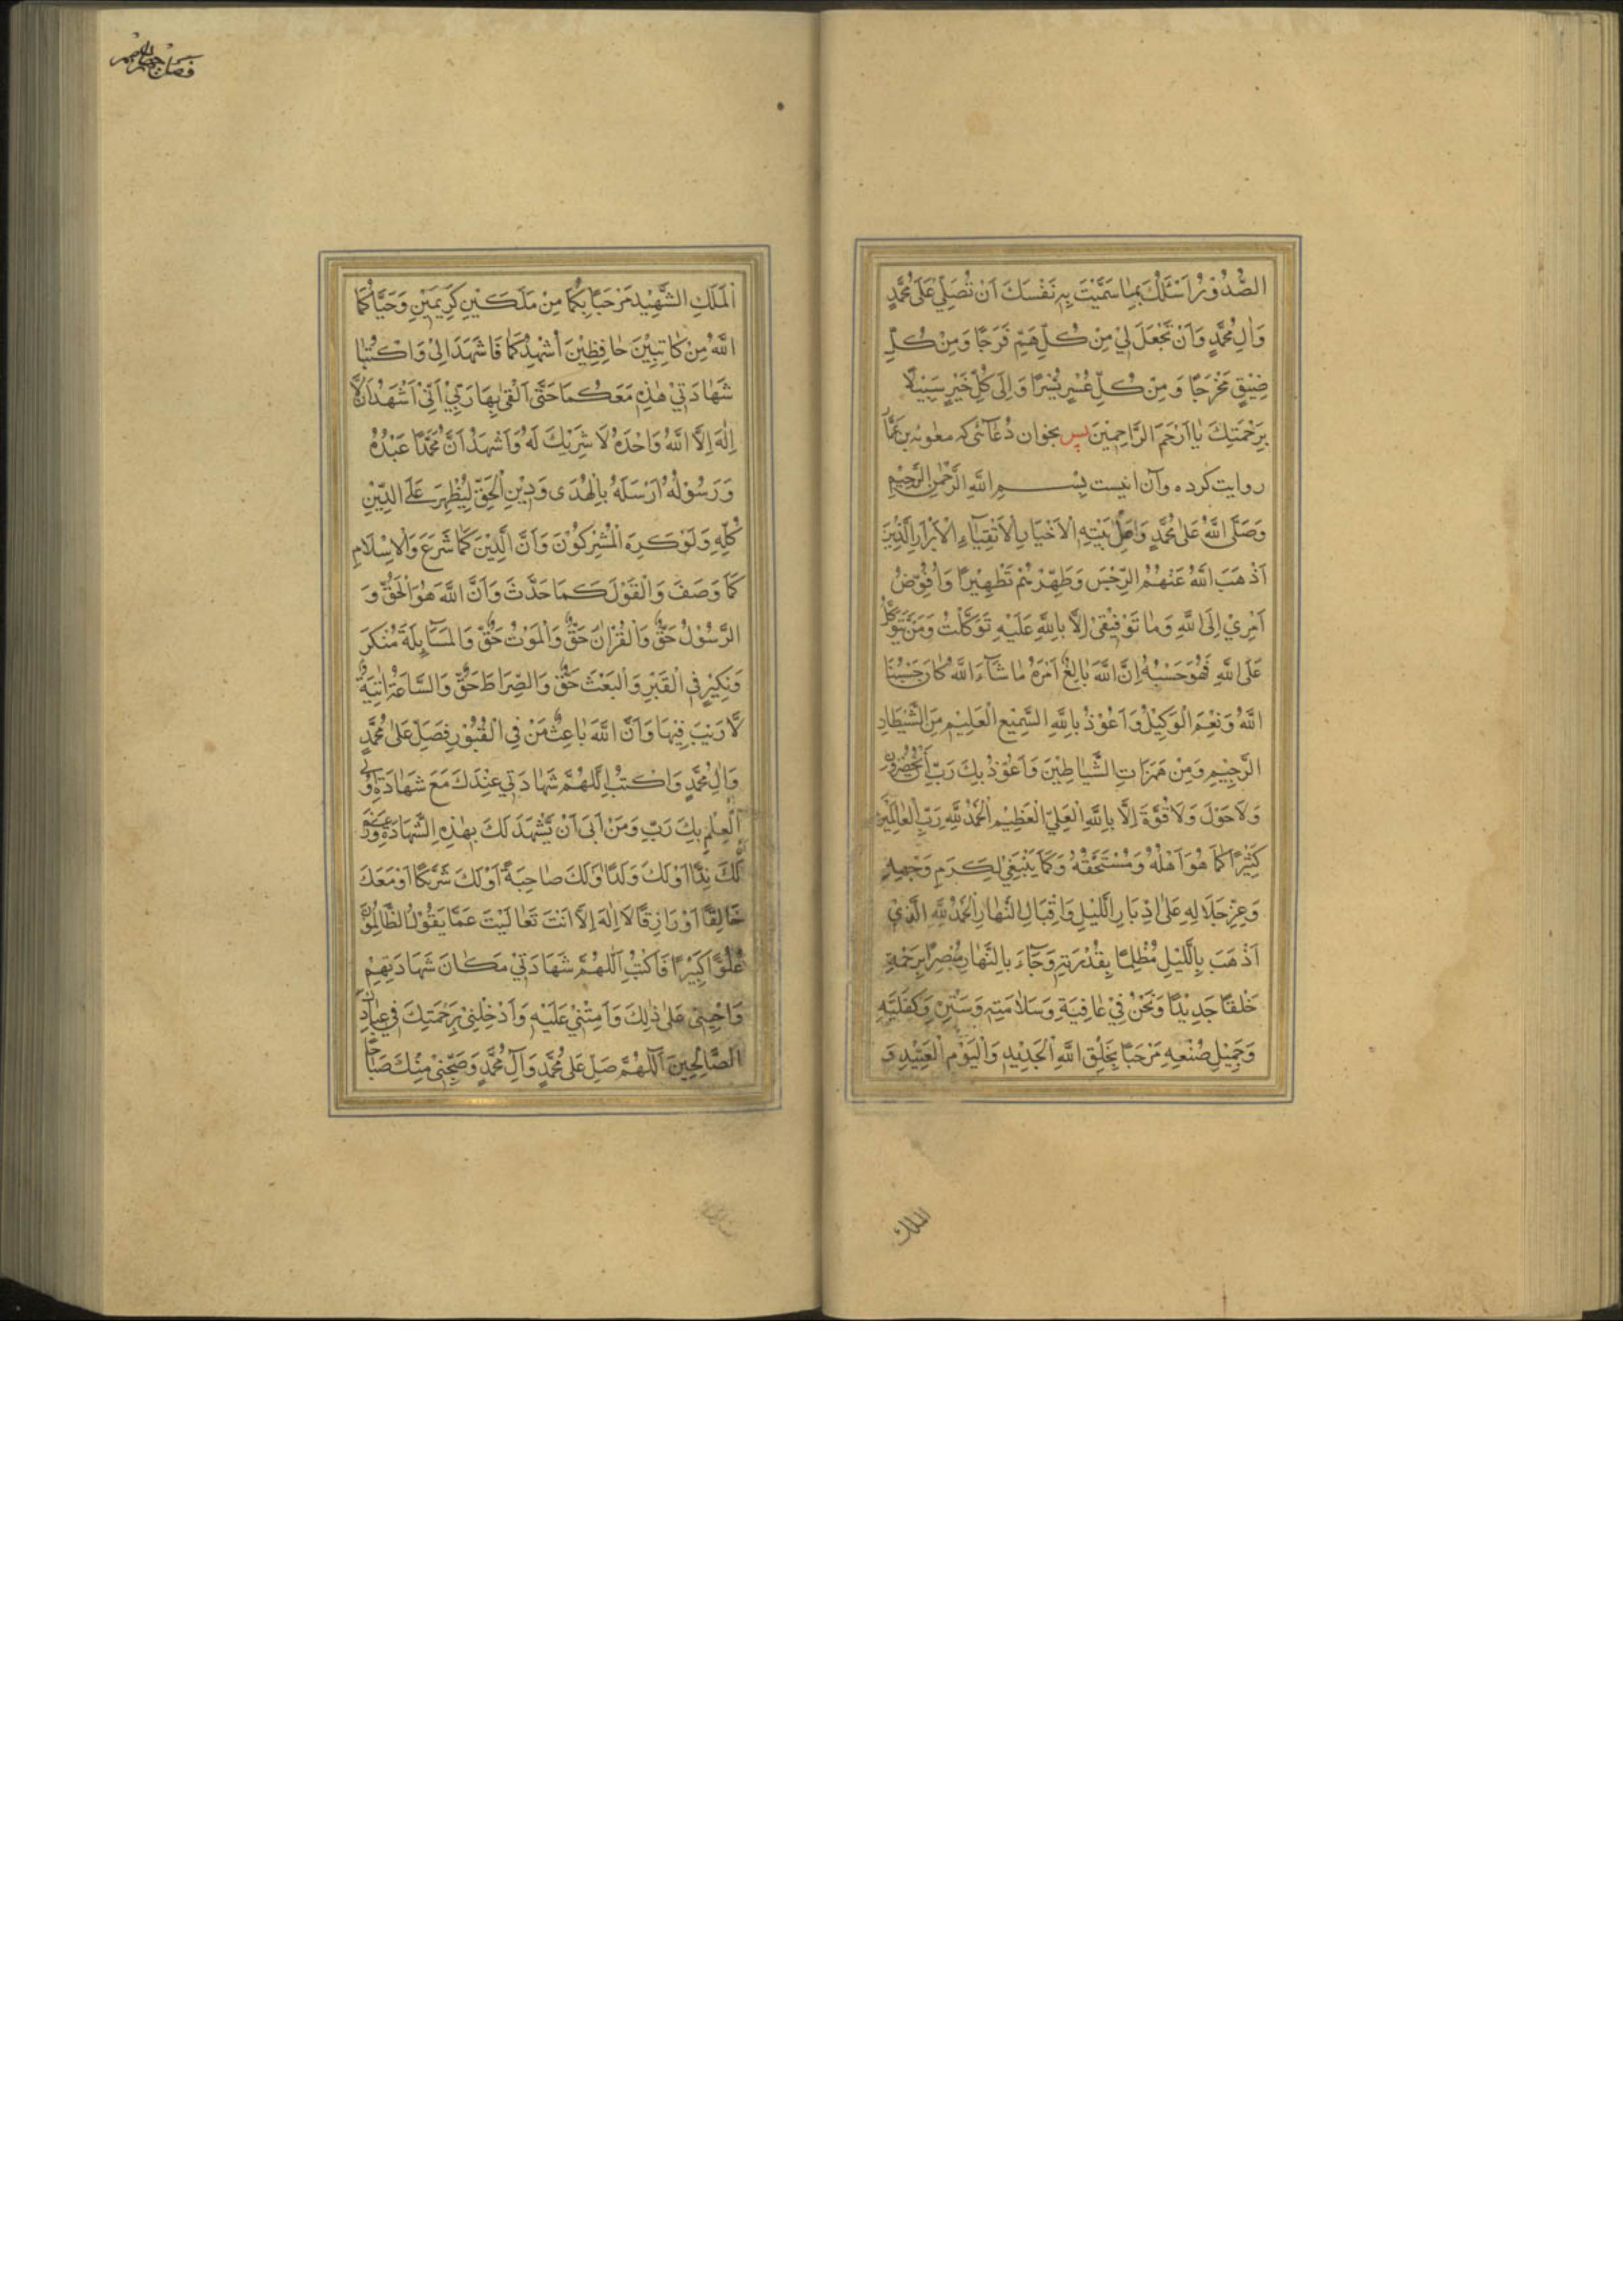 الصُّدُوْرُ اَسْئَلُكَ بِمٰا سَمَّيْتَ بِهِ نَفْسَكَ اَنْ تُصَلِّيَ عَلٰى مُحَمَّدٍ
وَاٰلِ مُحَمَّدٍ وَاَنْ تَجْعَلَ لِيْ مِنْ كُلِّ هَمٍّ فَرَجًا وَمِنْ كُلِّ
ضِيْقٍ مَخْرَجًا وَ مِنْ كُلِّ عُسْرٍ يُسْرًا وَ اِلٰى كُلِّ خَيْرٍ سَبِيْلًا
بِرَحْمَتِكَ يٰا اَرْحَمَ الرَّاحِمِيْنَ پس بخوان دُعٰائى كه معٰويه بن عمّار
روايت كرده وآن اينست بِسْمِ اللّٰهِ الرَّحْمٰنِ الرَّحِيْمِ
وَصَلَّى اللّٰهُ عَلٰى مُحَمَّدٍ وَاَهْلِ بَيْتِهِ الْاَخْيٰارِ الْاَتْقِيٰاءِ الْاَبْرَارِ الَّذِيْنَ
اَذْهَبَ اللّٰهُ عَنْهُمُ الرِّجْسَ وَطَهَّرَهُمْ تَطْهِيْرًا وَاُفَوِّضُ
اَمْرِيْ اِلَى اللّٰهِ وَمٰا تَوْفِيْقِيْ اِلَّا بِاللّٰهِ عَلَيْهِ تَوَكَّلْتُ وَمَنْ يَتَوَكَّلْ
عَلَى اللّٰهِ فَهُوَ حَسْبُهُ اِنَّ اللّٰهَ بٰالِغُ اَمْرِهِ مٰا شٰاءَ اللّٰهُ كٰانَ حَسْبُنَا
اللّٰهُ وَنِعْمَ الْوَكِيْلُ وَاَعُوْذُ بِاللّٰهِ السَّمِيْعِ الْعَلِيْمِ مِنَ الشَّيْطَانِ
الرَّجِيْمِ وَمِنْ هَمَزَاتِ الشَّيٰاطِيْنَ وَاَعُوْذُ بِكَ رَبِّ اَنْ يَحْضُرُوْنِ
وَلَا حَوْلَ وَلَا قُوَّةَ اِلَّا بِاللّٰهِ الْعَلِيِّ الْعَظِيْمِ اَلْحَمْدُ لِلّٰهِ رَبِّ الْعٰالَمِيْنَ
كَثِيْرًا كَمٰا هُوَ اَهْلُهُ وَمُسْتَحَقُّهُ وَكَمٰا يَنْبَغِيْ لِكَرَمِ وَجْهِهِ
وَعِزِّ جَلَالِهِ عَلٰى اِدْبَارِ اللَّيْلِ وَاِقْبَالِ النَّهٰارِ اَلْحَمْدُ لِلّٰهِ الَّذِيْ
اَذْهَبَ بِاللَّيْلِ مُظْلِمًا بِقُدْرَتِهِ وَجٰاءَ بِالنَّهٰارِ مُبْصِرًا بِرَحْمَتِهِ
خَلْقًا جَدِيْدًا وَنَحْنُ فِيْ عٰافِيَةِ وَسَلٰامَتِهِ وَسَتْرِهِ وَكِفٰايَتِهِ
وَجَمِيْلِ صُنْعِهِ مَرْحَبًا بِخَلْقِ اللّٰهِ الْجَدِيْدِ وَالْيَوْمِ الْعَتِيْدِ وَ
الملك
اَلْمَلَكِ الشَّهِيْدِ مَرْحَبًا بِكُمَا مِنْ مَلَكَيْنِ كَرِيْمَيْنِ وَحَيَّاكُمَا
اللّٰهُ مِنْ كٰاتِبَيْنِ حٰافِظَيْنِ اُشْهِدُكُمَا فَاشْهَدَا لِيْ وَاكْتُبٰا
شَهٰادَتِيْ هٰذِهِ مَعَكُمَا حَتّٰى اَلْقٰى بِهٰا رَبِّيْ اَنِّيْ اَشْهَدُ اَنْ لَّا
اِلٰهَ اِلَّا اللّٰهُ وَاحْدَهُ لَا شَرِيْكَ لَهُ وَاَشْهَدُ اَنَّ مُحَمَّدًا عَبْدُهُ
وَرَسُوْلُهُ اَرْسَلَهُ بِالْهُدٰى وَدِيْنِ الْحَقِّ لِيُظْهِرَهُ عَلَى الدِّيْنِ
كُلِّهِ وَلَوْ كَرِهَ الْمُشْرِكُوْنَ وَاَنَّ الدِّيْنَ كَمٰا شَرَعَ وَالْاِسْلَامِ
كَمٰا وَصَفَ وَالْقَوْلَ كَمَا حَدَّثَ وَاَنَّ اللّٰهَ هُوَ الْحَقُّ وَ
الرَّسُوْلُ حَقٌّ وَالْقُرْاٰنَ حَقٌّ وَالْمَوْتُ حَقٌّ وَالْمَسٰاءِلَةَ مُنْكَرَ
وَنَكِيْرٍ فِي الْقَبْرِ وَالْبَعْثَ حَقٌّ وَالصِّرَاطَ حَقٌّ وَالسَّاعَةُ اٰتِيَةٌ
لَّا رَيْبَ فِيْهَا وَاَنَّ اللّٰهَ بٰاعِثُ مَنْ فِي الْقُبُوْرِ فَصَلِّ عَلٰى مُحَمَّدٍ
وَاٰلِ مُحَمَّدٍ وَاكْتُبْ اَللّٰهُمَّ شَهٰادَتِي عِنْدَكَ مَعَ شَهٰادَةِ اُولِي
الْعِلْمِ بِكَ رَبِّ وَمَنْ اَبٰى اَنْ يَّشْهَدَ لَكَ بِهٰذِهِ الشَّهٰادَةِ وَزَعَمَ اَنَّ
لَكَ نِدًّا اَوْ لَكَ وَلَدًا اَوْ لَكَ صٰاحِبَةً اَوْ لَكَ شَرِيْكًا اَوْ مَعَكَ
خَالِقًا اَوْ رَازِقًا لَا اِلٰهَ اِلَّا اَنْتَ تَعٰالَيْتَ عَمَّا يَقُوْلُ الظَّالِمُوْنَ
عُلُوًّا كَبِيْرًا فَاكْتُبْ اَللّٰهُمَّ شَهٰادَتِيْ مَكَانَ شَهٰادَتِهِمْ
وَاَحْيِنِيْ عَلٰى ذٰلِكَ وَاَمِتْنِيْ عَلَيْهِ وَاَدْخِلْنِيْ بِرَحْمَتِكَ فِي عِبٰادِكَ
الصَّالِحِيْنَ اَللّٰهُمَّ صَلِّ عَلٰى مُحَمَّدٍ وَآلِ مُحَمَّدٍ وَصَبِّحْنِيْ مِنْكَ صَبَاحًا